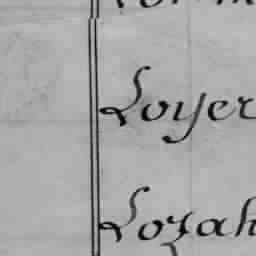 Loyer
Lozah